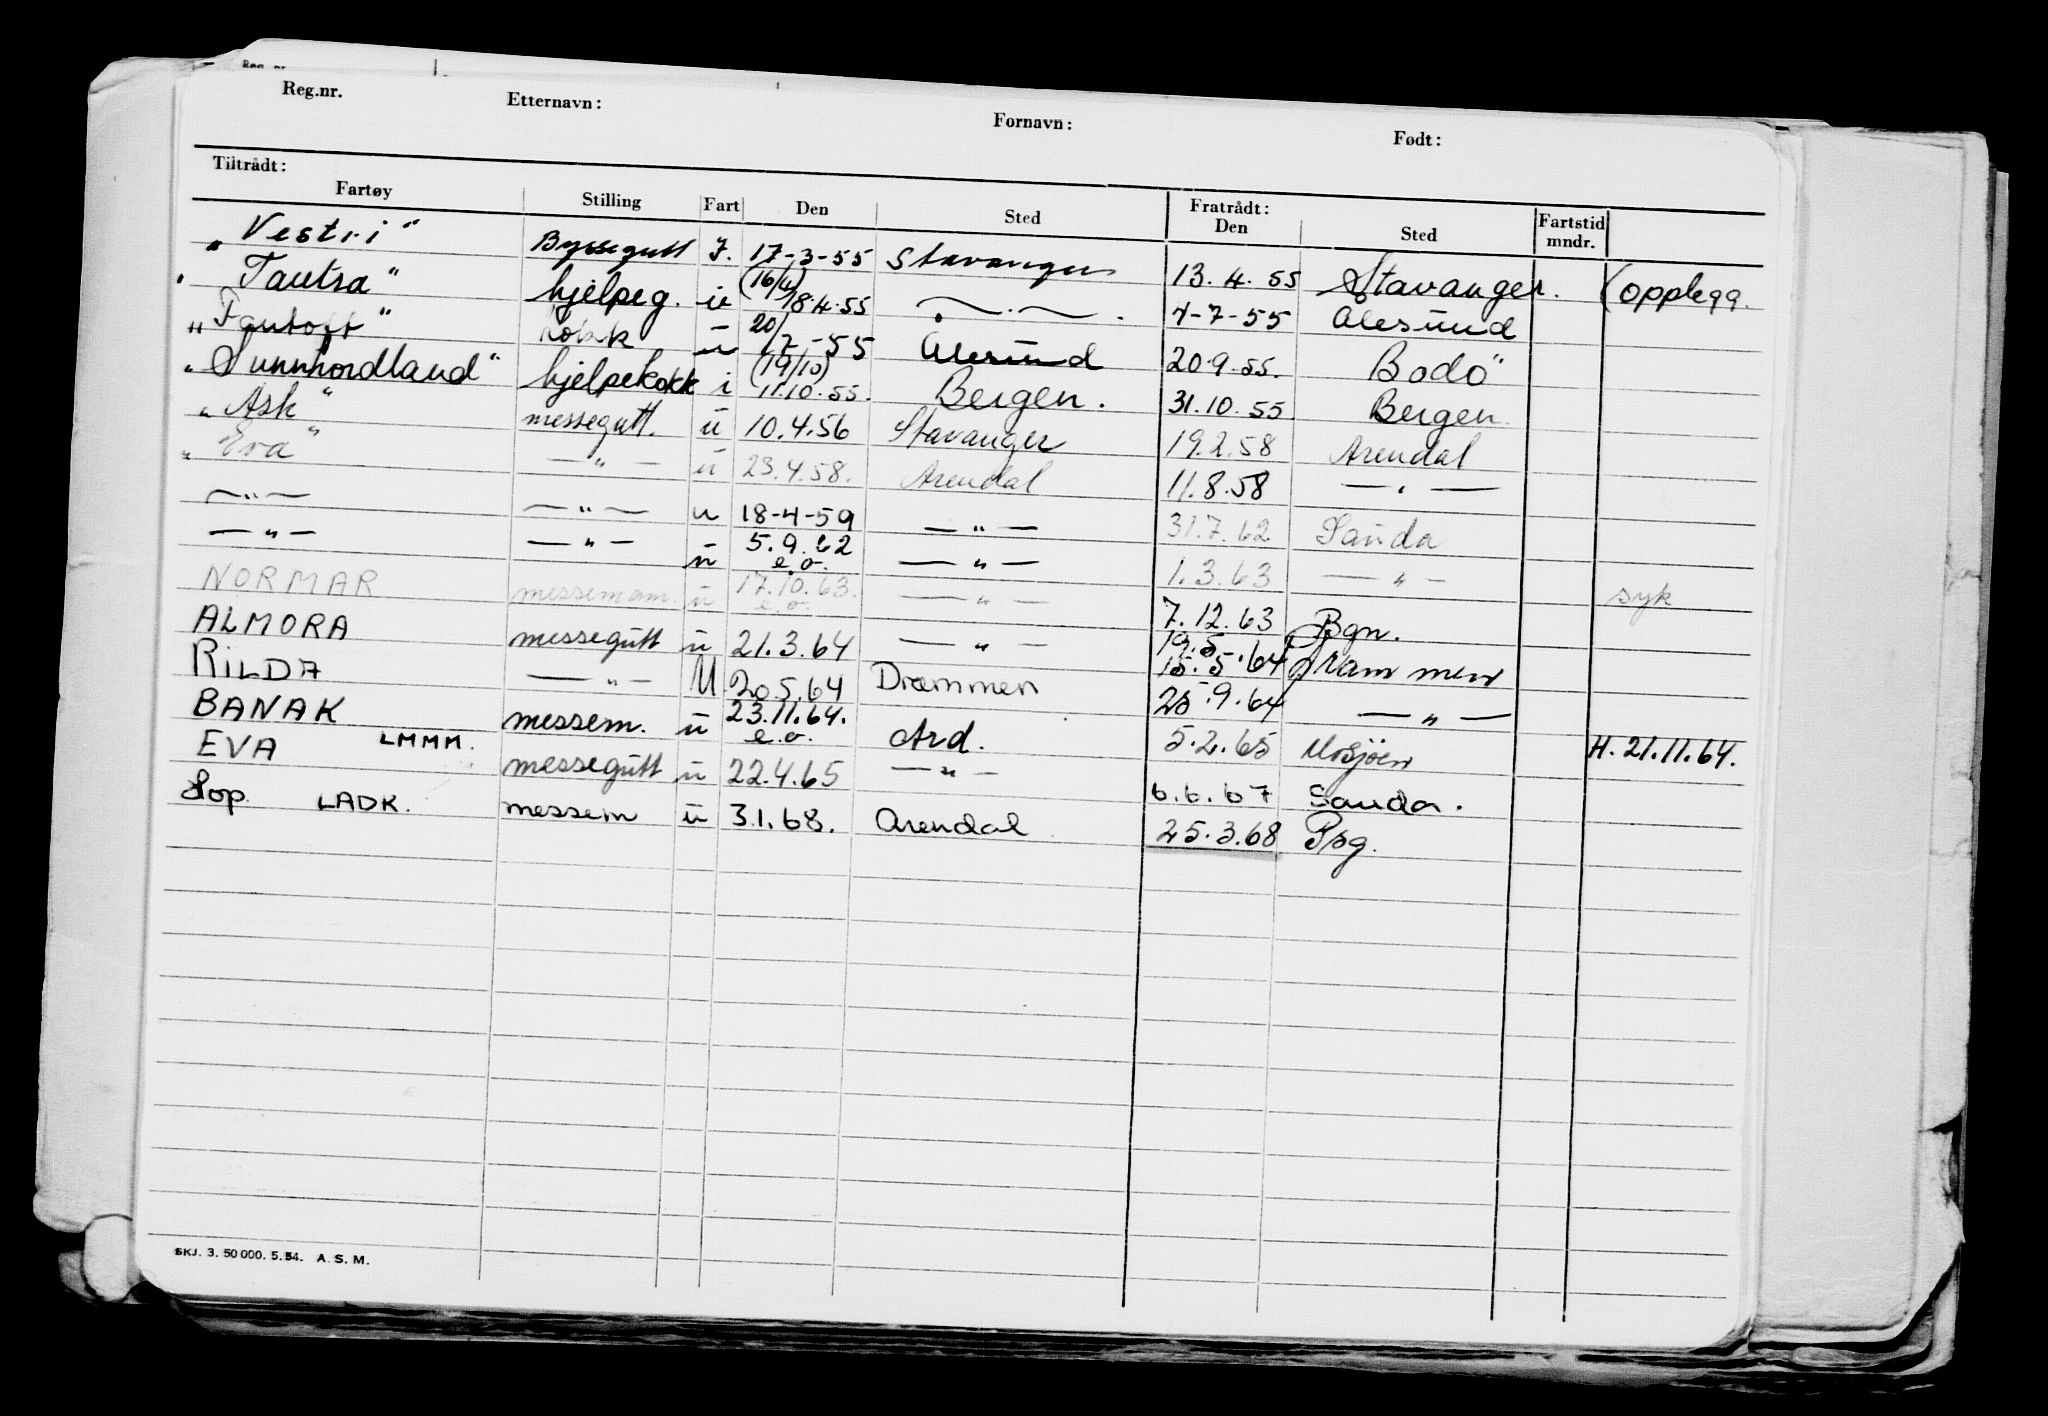 Reg.nr. Etternavn: Fornavn: Født:
Tiltrådt: Fratrådt:
Fartøy Stilling Fart Den Sted Den Sted Fartstid mndr.
"Vestri" Byssegutt I. 17-3-55 Stavanger 13.4.55 Stavanger. (opplegg.
"Tautra" hjelpeg. u (16/4) 18.4.55 — . — . 7-7-55 Ålesund
"Fantoft" kokk u 20/7-55 Ålesund 20.9.55. Bodö
"Sunnhordland" hjelpekokk i (19/10) 11.10.55. Bergen. 31.10.55 Bergen.
"Ask" messegutt. u 10.4.56 Stavanger 19.2.58 Arendal
"Eva" — " — u 23.4.58. Arendal 11.8.58 — " —
— " — — " — u 18-4-59 — " — 31.7.62 Sauda
— " — — " — u 5.9.62 e.o. — " — 1.3.63 — " — syk
NORMAR messemann. u 17.10.63. e.o. — " — 7.12.63 Bgn.
ALMORA messegutt u 21.3.64 — " — 19.5 15.5.64 Drammen
RILDA — " — U 20.5.64 Drammen 25.9.64 — " —
BANAK LMMM. messem. u 23.11.64. e.o. Ard. 5.2.65 Mosjøen H. 21.11.64.
EVA messegutt u 22.4.65 — " — 6.6.67 Sauda.
Hop LADK. messem u 3.1.68. Arendal 25.3.68 Psg.
SKJ. 3. 50 000. 5.54. A. S. M.